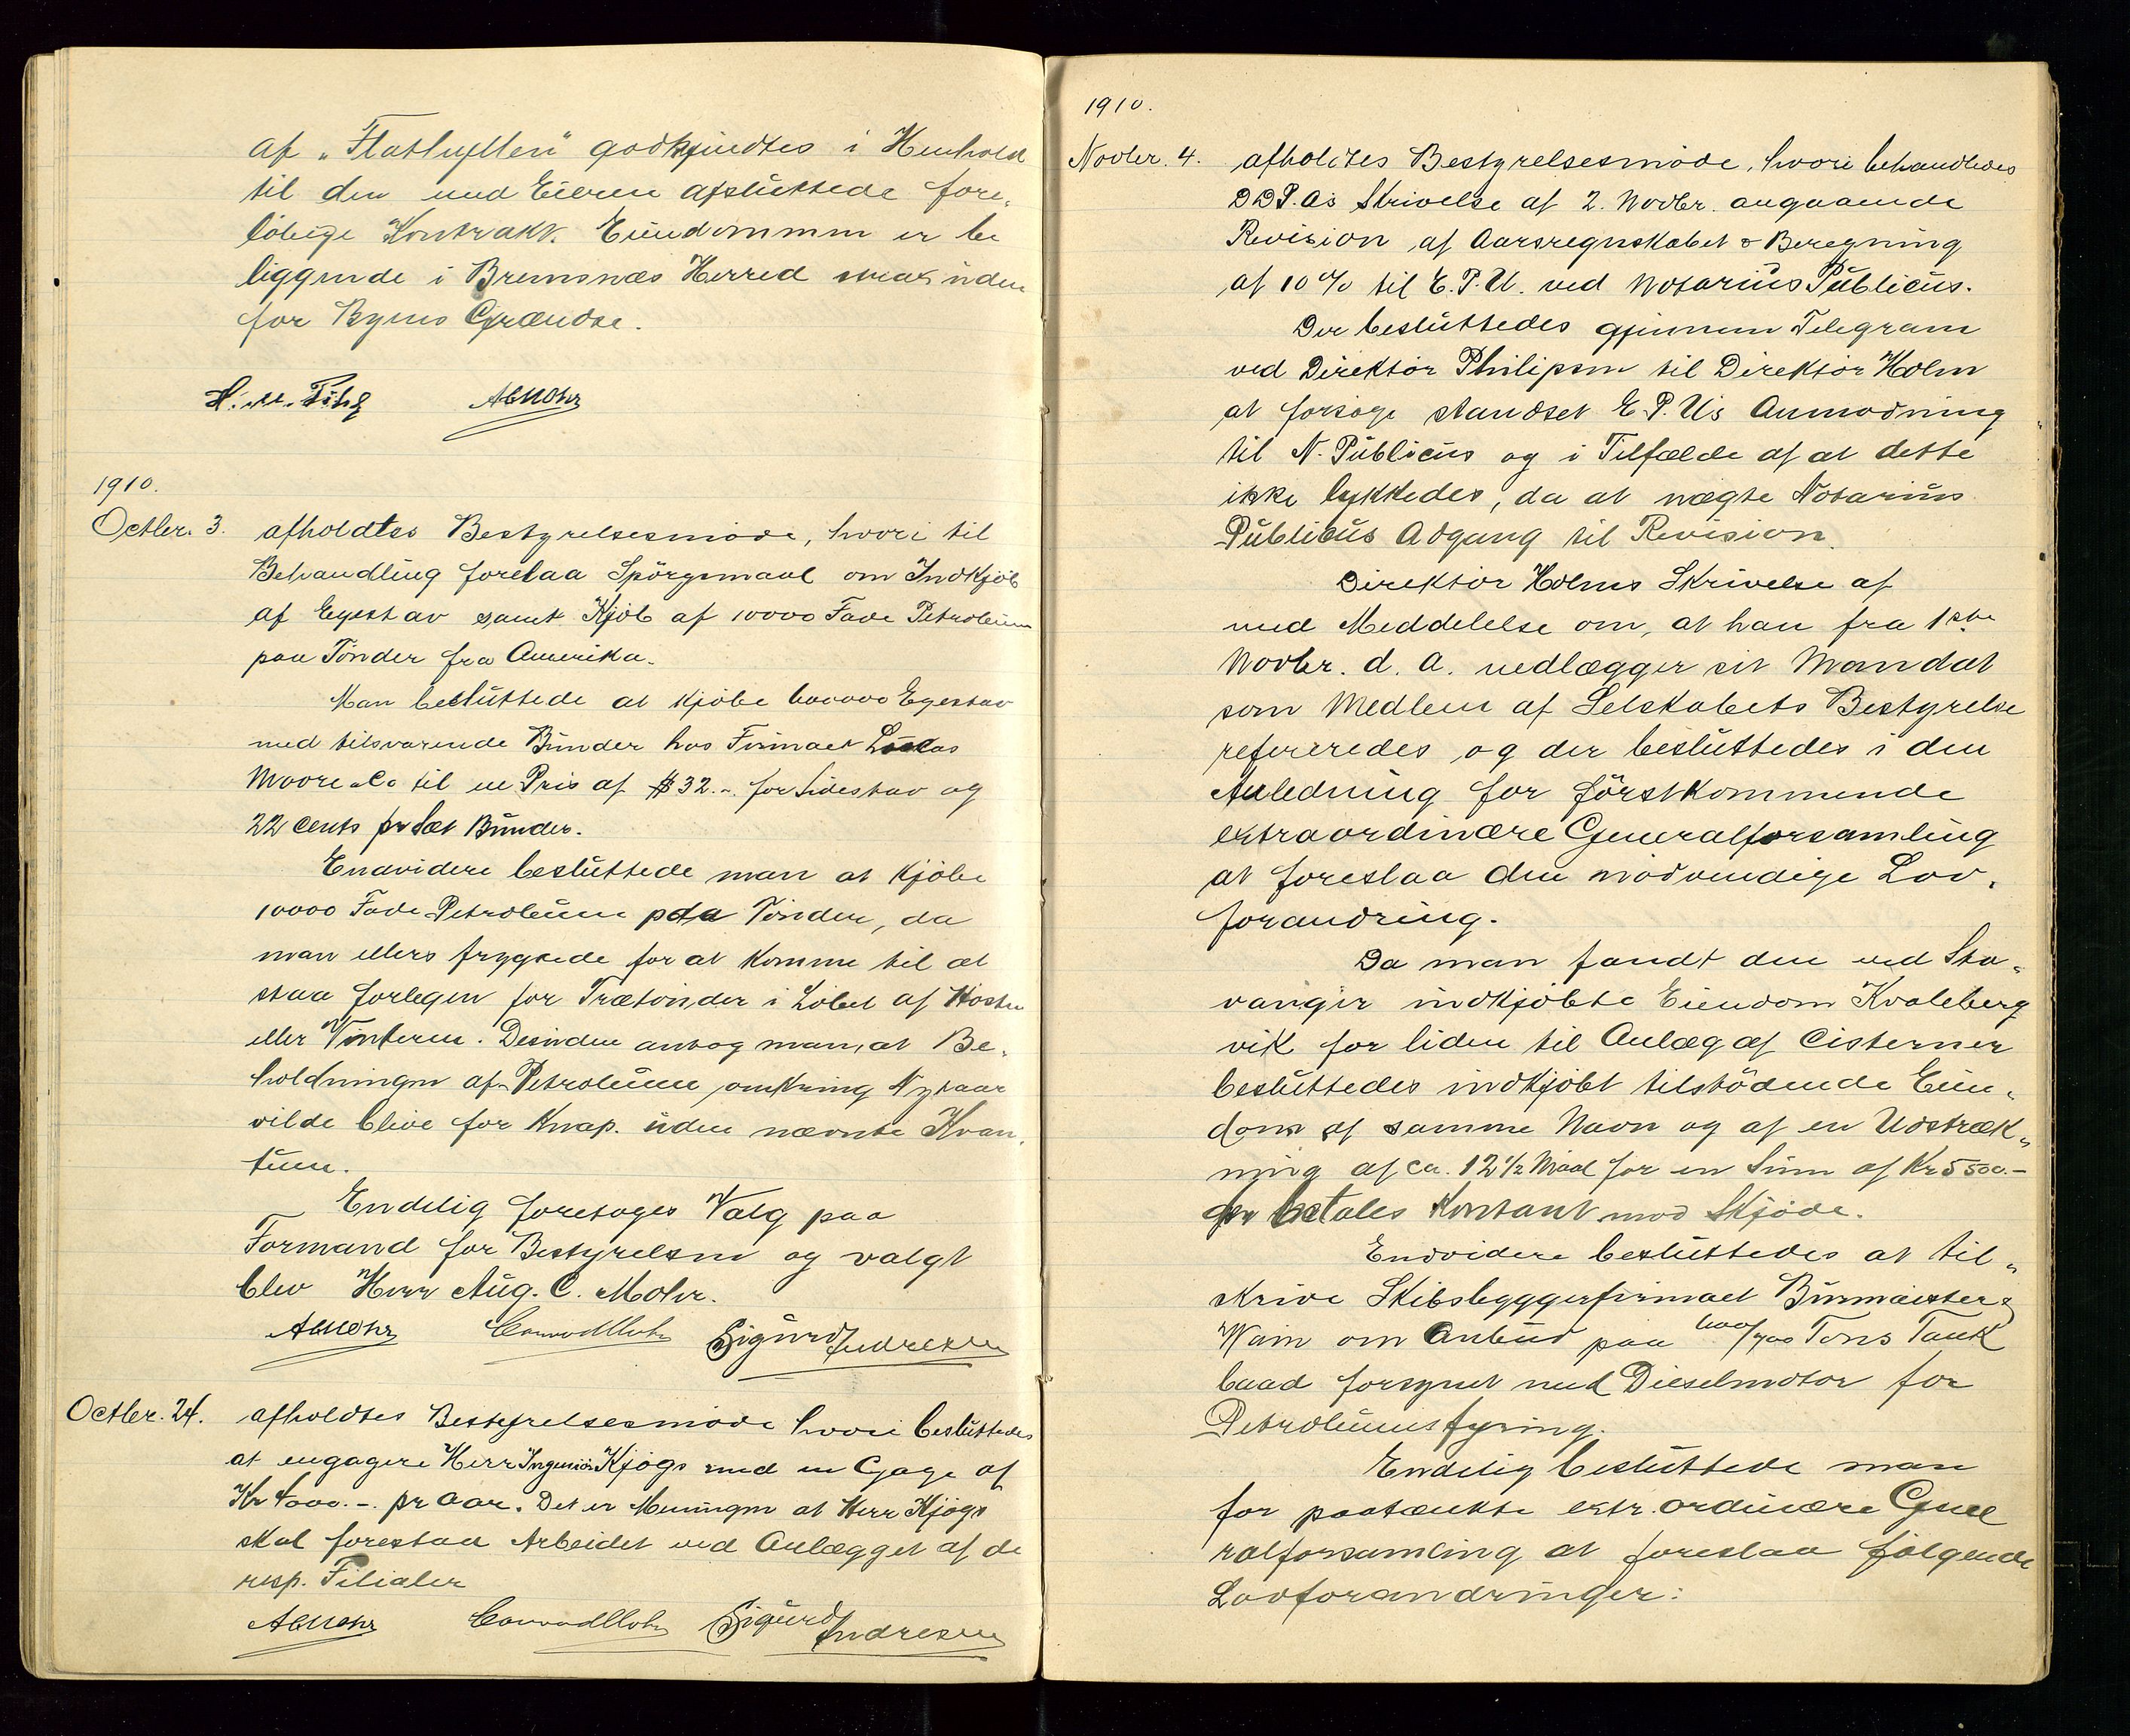 af "Flathyllen" godkjendtes i Henhold
til den med Eieren afsluttede fore„
löbige Kontrakt. Eiendommen er be
liggende i Bremsnæs Herred strax uden
for Byens Grændse.
AbMohr
1910.
Octbr. 3. afholdtes Bestyrelsesmöde, hvori til
Behandling forelaa Spörgsmaal om Indkjöb
af Egestav samt Kjöb af 10000 Fade Petroleum
paa Tönder fra Amerika.
Man besluttede at kjöbe 600000 Egestav
med tilsvarende Bunder hos Firmaet Lucas
Moore & Co til en Pris af $ 32.-. for Sidestav og
22 Cents pr Sæt Bunder.
Endvidere besluttede man at kjöbe
10000 Fade Petroleum paa Tönder, da
man ellers frygtede for at komme til at
staa forlegen for Trætönder i Löbet af Hösten
eller Vinteren. Desuden antog man, at Be„
holdningen af Petroleum omkring Nytaar
vilde blive for knap. uden nævnte Kvan„
tum.
Endelig foretoges Valg paa
Formand for Bestyrelsen og valgt
blev Herr Aug. C. Mohr.
AbMohr Conrad Mohr Sigurd Indresen
Octbr. 24. afholdtes Bestyrelsesmöde hvori besluttedes
at engagere Herr Ingeniör Kjøgs med en Gage af
Kr 4000.-. pr Aar. Det er Meningen at Herr Kjøgs
skal forestaa Arbeidet ved Anlægget af de
resp. Filialer
AbMohr Conrad Mohr Sigurd Indresen
1910.
Novbr. 4. afholdtes Bestyrelsesmöde, hvori behandledes
D.D.P.A's Skrivelse af 2. Novbr. angaaende
Revision af Aarsregnskabet & Beregning
af 10 % til E. P. U. ved Notarius Publicus.
Der besluttedes gjennem Telegram
ved Direktör Philipsen til Direktör Holm
at forsöge standset E. P. U's Anmodning
til N. Publicus og i Tilfælde af at dette
ikke lykkedes, da at nægte Notarius
Publicus Adgang til Revision.
Direktör Holms Skrivelse af
med Meddelelse om, at han fra 1ste
Novbr. d. A. nedlægger sit Mandat
som Medlem af Selskabets Bestyrelse
refereredes og der besluttedes i den
Anledning for förstkommende
extraordinære Generalforsamling
at foreslaa den nödvendige Lov„
forandring.
Da man fandt den ved Sta„
vanger indkjöbte Eiendom Kvaleberg
vik for liden til Anlæg af Cisterner
besluttedes indkjöbt tilstödende Eien„
dom af samme Navn og af en Udstræk„
ning af ca. 12 1/2 Maal for en Sum af Kr 5500.-
der betales kontant mod Skjöde.
Endvidere besluttedes at til„
skrive Skibsbyggerfirmaet Burmeister &
Wain om Anbud paa Tons Tank
baad forsynet med Dieselmotor for
Petroleumsfyring.
Endelig besluttede man
for paatænkte extr.ordinære Gene
ralforsamling at foreslaa fölgende
Lovforandringer: